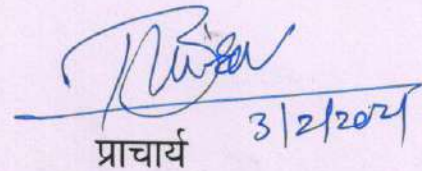 3/2/2021
प्राचार्य